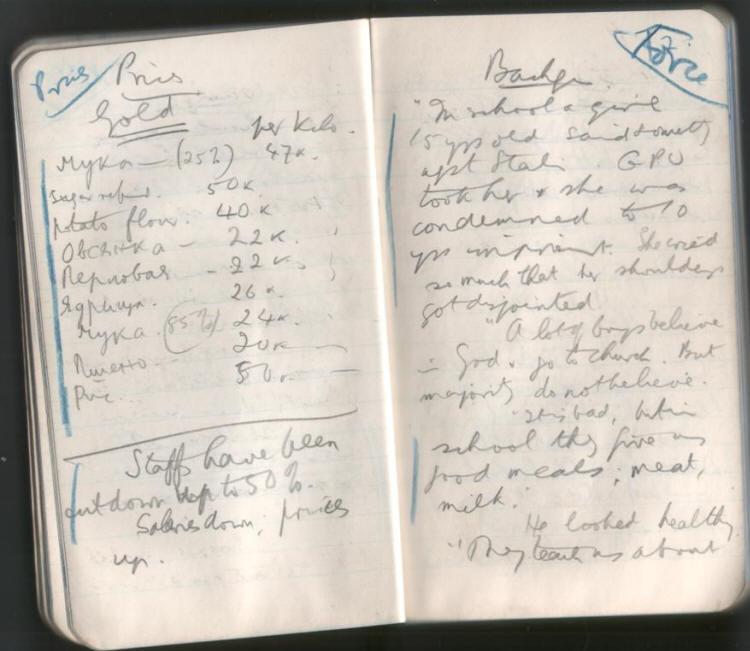 Prices
Prices
Gold
per Kilo.
Мука — (25%) 47к.
Sugar refind. 50к
potato flour. 40к
Овсянка — 22к.
Перловая — 22к.
Ядрица. 26к.
Мука (85%) 24к.
Пшено 20к
Рис. 50к.
Staffs have been
cut down up to 50%.
Salaries down, prices
up.
Force
"In school a girl
15 yrs old said somethg
agst Stalin. GPU
took her & she was
condemned to 10
yrs imprismt. She cried
so much that her shoulders
got disjointed
"A lot of boys believe
in God & go to church. But
majority do not believe.
"It is bad, but in
school they give us
good meals; meat,
milk."
He looked healthy.
"They teach us about